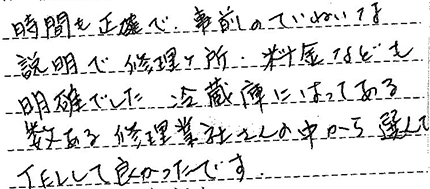 時間も正確で、事前のていねいな
説明で修理ヶ所・料金なども
明確でした 冷蔵庫にはってある
数ある修理業社さんの中から選んで
TELして良かったです。